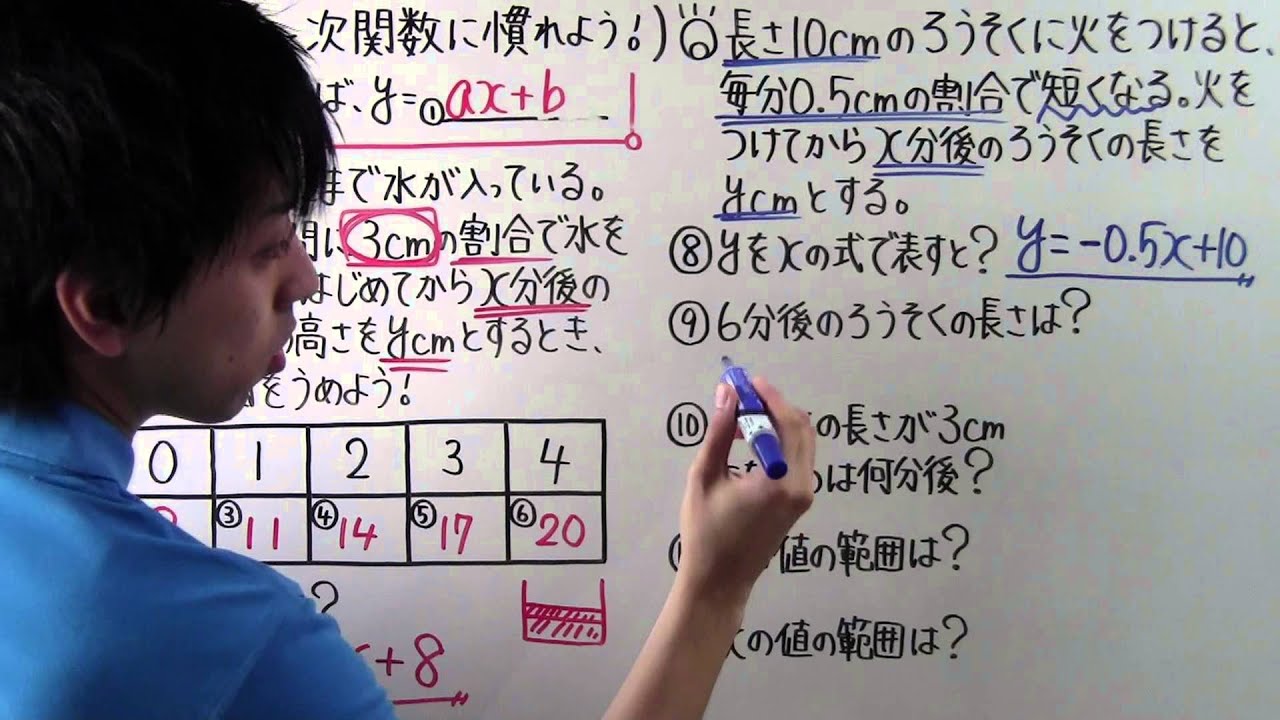 次関数に慣れよう!)
ば、y=①ax+b
まで水が入っている。
間に3cmの割合で水を
はじめてからx分後の
高さをycmとするとき、
をうめよう!
0 1 2 3 4
③11 ④14 ⑤17 ⑥20
?
+8
長さ10cmのろうそくに火をつけると、
毎分0.5cmの割合で短くなる。火を
つけてからx分後のろうそくの長さを
ycmとする。
⑧yをxの式で表すと? y=-0.5x+10
⑨6分後のろうそくの長さは?
⑩の長さが3cm
は何分後?
値の範囲は?
xの値の範囲は?